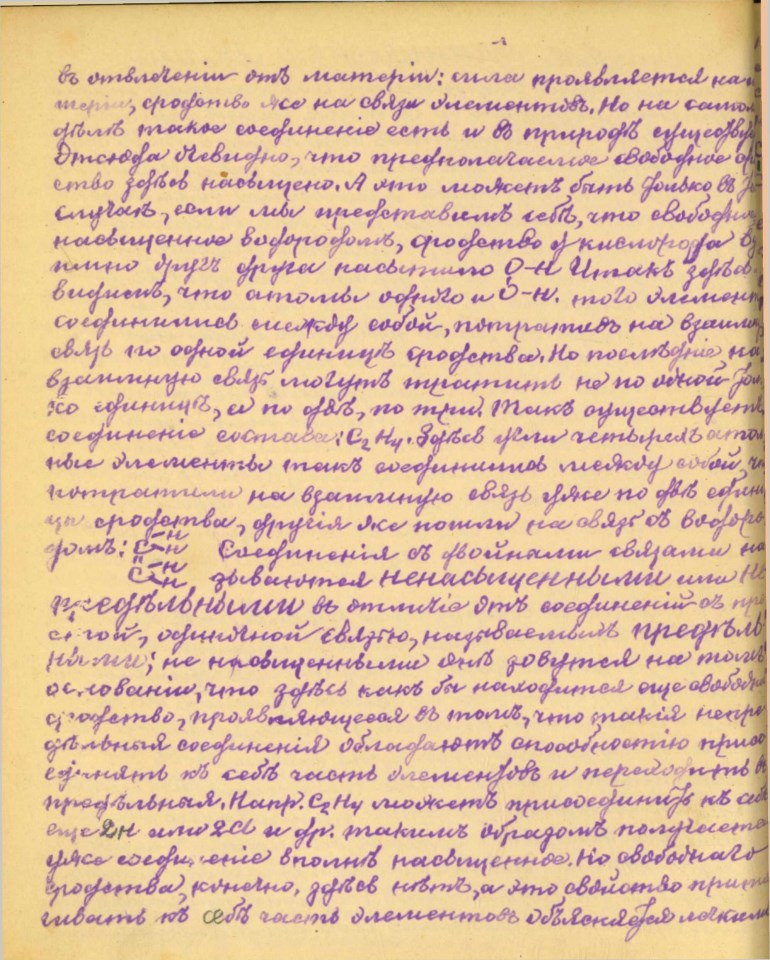 въ отвлеченіи отъ матеріи: сила проявляется на ма
теріи, сродство же на связи элементовъ. Но на самом
дѣлѣ такое соединеніе есть и въ природѣ существуе
Отсюда очевидно, что предполагаемое свободное ср
ство здѣсь насыщено. А это можетъ быть только въ то
случаѣ, если мы представимъ себѣ, что свободны
насыщенное водородомъ, сродство у кислорода вз
имно другъ друга насытило O-H Итакъ здѣсь
видимъ, что атомы одного и O-H. того элемен
соединились между собой, потративъ на взаимн
связь по одной единицѣ сродства. Но послѣдніе на
взаимную связь могутъ тратить не по одной толь
ко единицѣ, а по двѣ, по три. Такъ существуетъ
соединеніе состава: C₂H₄. Здѣсь угли четырехатом
ные элементы такъ соединились между собой, ч
потратили на взаимную связь уже по двѣ едини
цы сродства, другія же пошли на связь съ водоро
домъ: C-H H Соединенія съ двойными связами на
C-H H зываются ненасыщенными или не
предѣльными въ отличіе отъ соединеній съ про
стой, одиночной связью, называемыхъ предѣль
ными; не насыщенными они зовутся на томъ
основаніи, что здѣсь какъ бы находится еще свободн
сродство, проявляющееся въ томъ, что такія непре
дѣльныя соединенія обладаютъ способностію присо
единять къ себѣ часть элементовъ и переходить въ
предѣльныя. Напр. C₂H₄ можетъ присоединить къ себ
еще 2H или 2Cl и др. такимъ образомъ получается
уже соединеніе вполнѣ насыщенное. Но свободнаго
сродства, конечно, здѣсь нѣтъ, а это свойство притя
гивать къ себѣ часть элементовъ объясняется